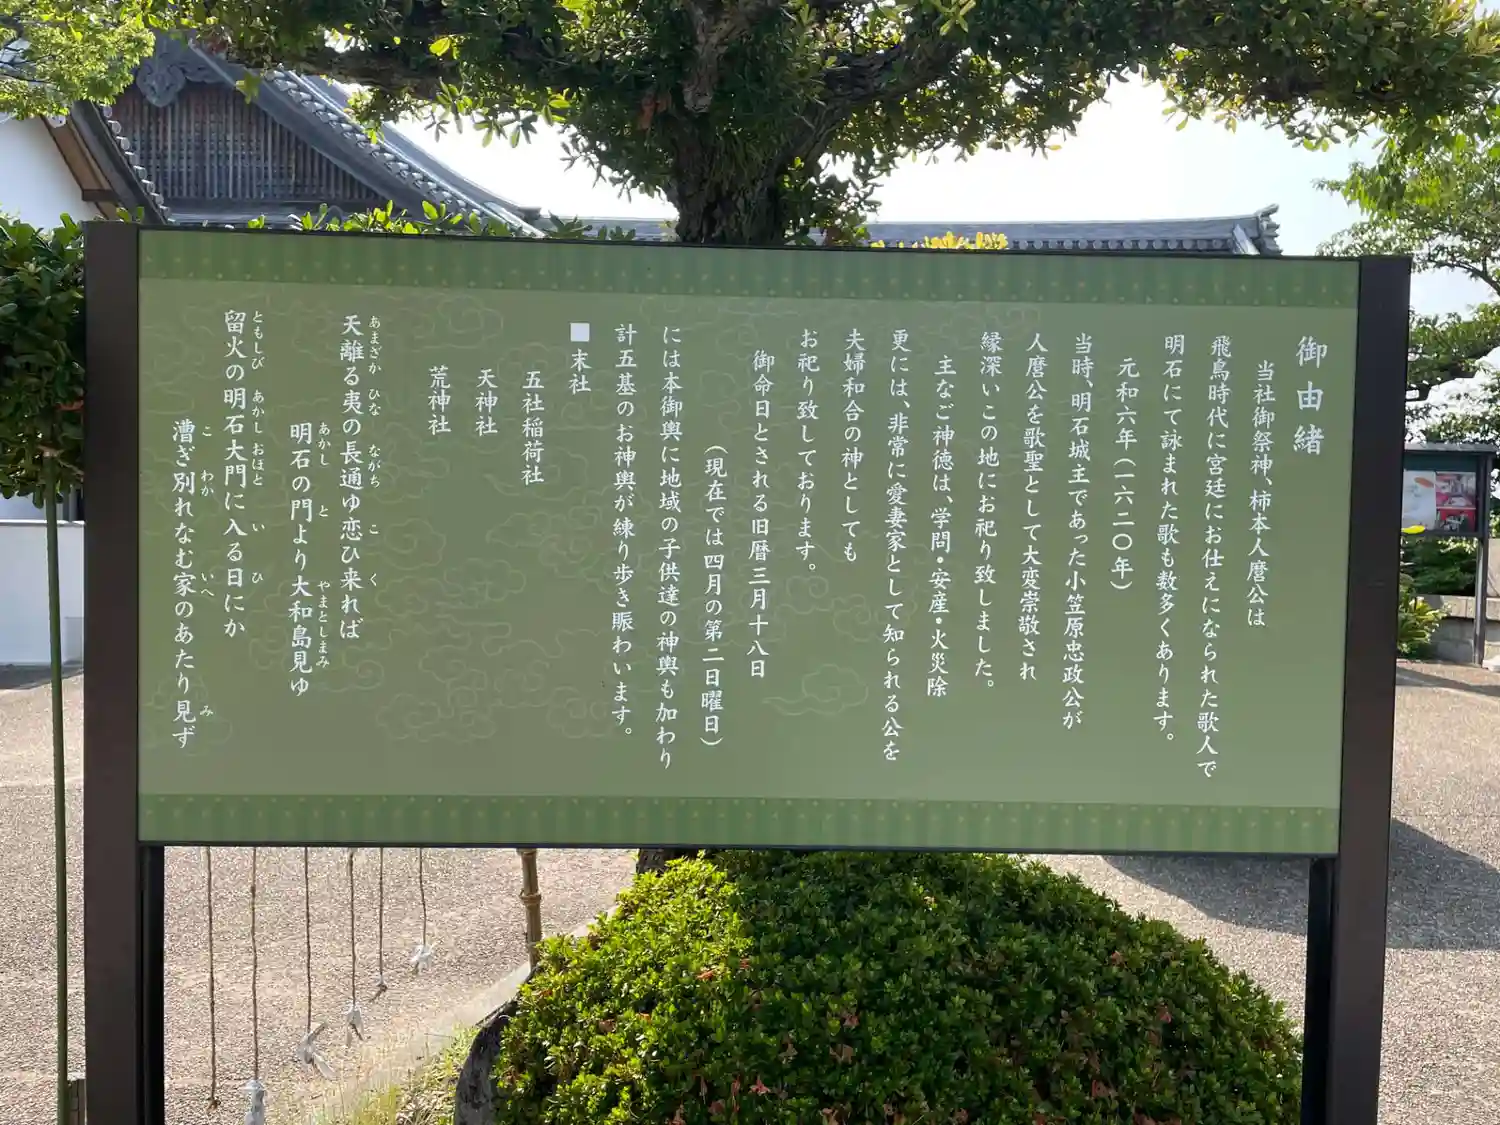 御由緒
当社御祭神、柿本人麿公は
飛鳥時代に宮廷にお仕えになられた歌人で
明石にて詠まれた歌も数多くあります。
元和六年(一六二〇年)
当時、明石城主であった小笠原忠政公が
人麿公を歌聖として大変崇敬され
縁深いこの地にお祀り致しました。
主なご神徳は、学問・安産・火災除
更には、非常に愛妻家として知られる公を
夫婦和合の神としても
お祀り致しております。
御命日とされる旧暦三月十八日
(現在では四月の第二日曜日)
には本御輿に地域の子供達の神輿も加わり
計五基のお神輿が練り歩き賑わいます。
■末社
五社稲荷社
天神社
荒神社
あまざか ひな ながち こ く
天離る夷の長通ゆ恋ひ来れば
あかし と やまとしまみ
明石の門より大和島見ゆ
ともしび あかし おほと い ひ
留火の明石大門に入る日にか
こ わか いへ み
漕ぎ別れなむ家のあたり見ず